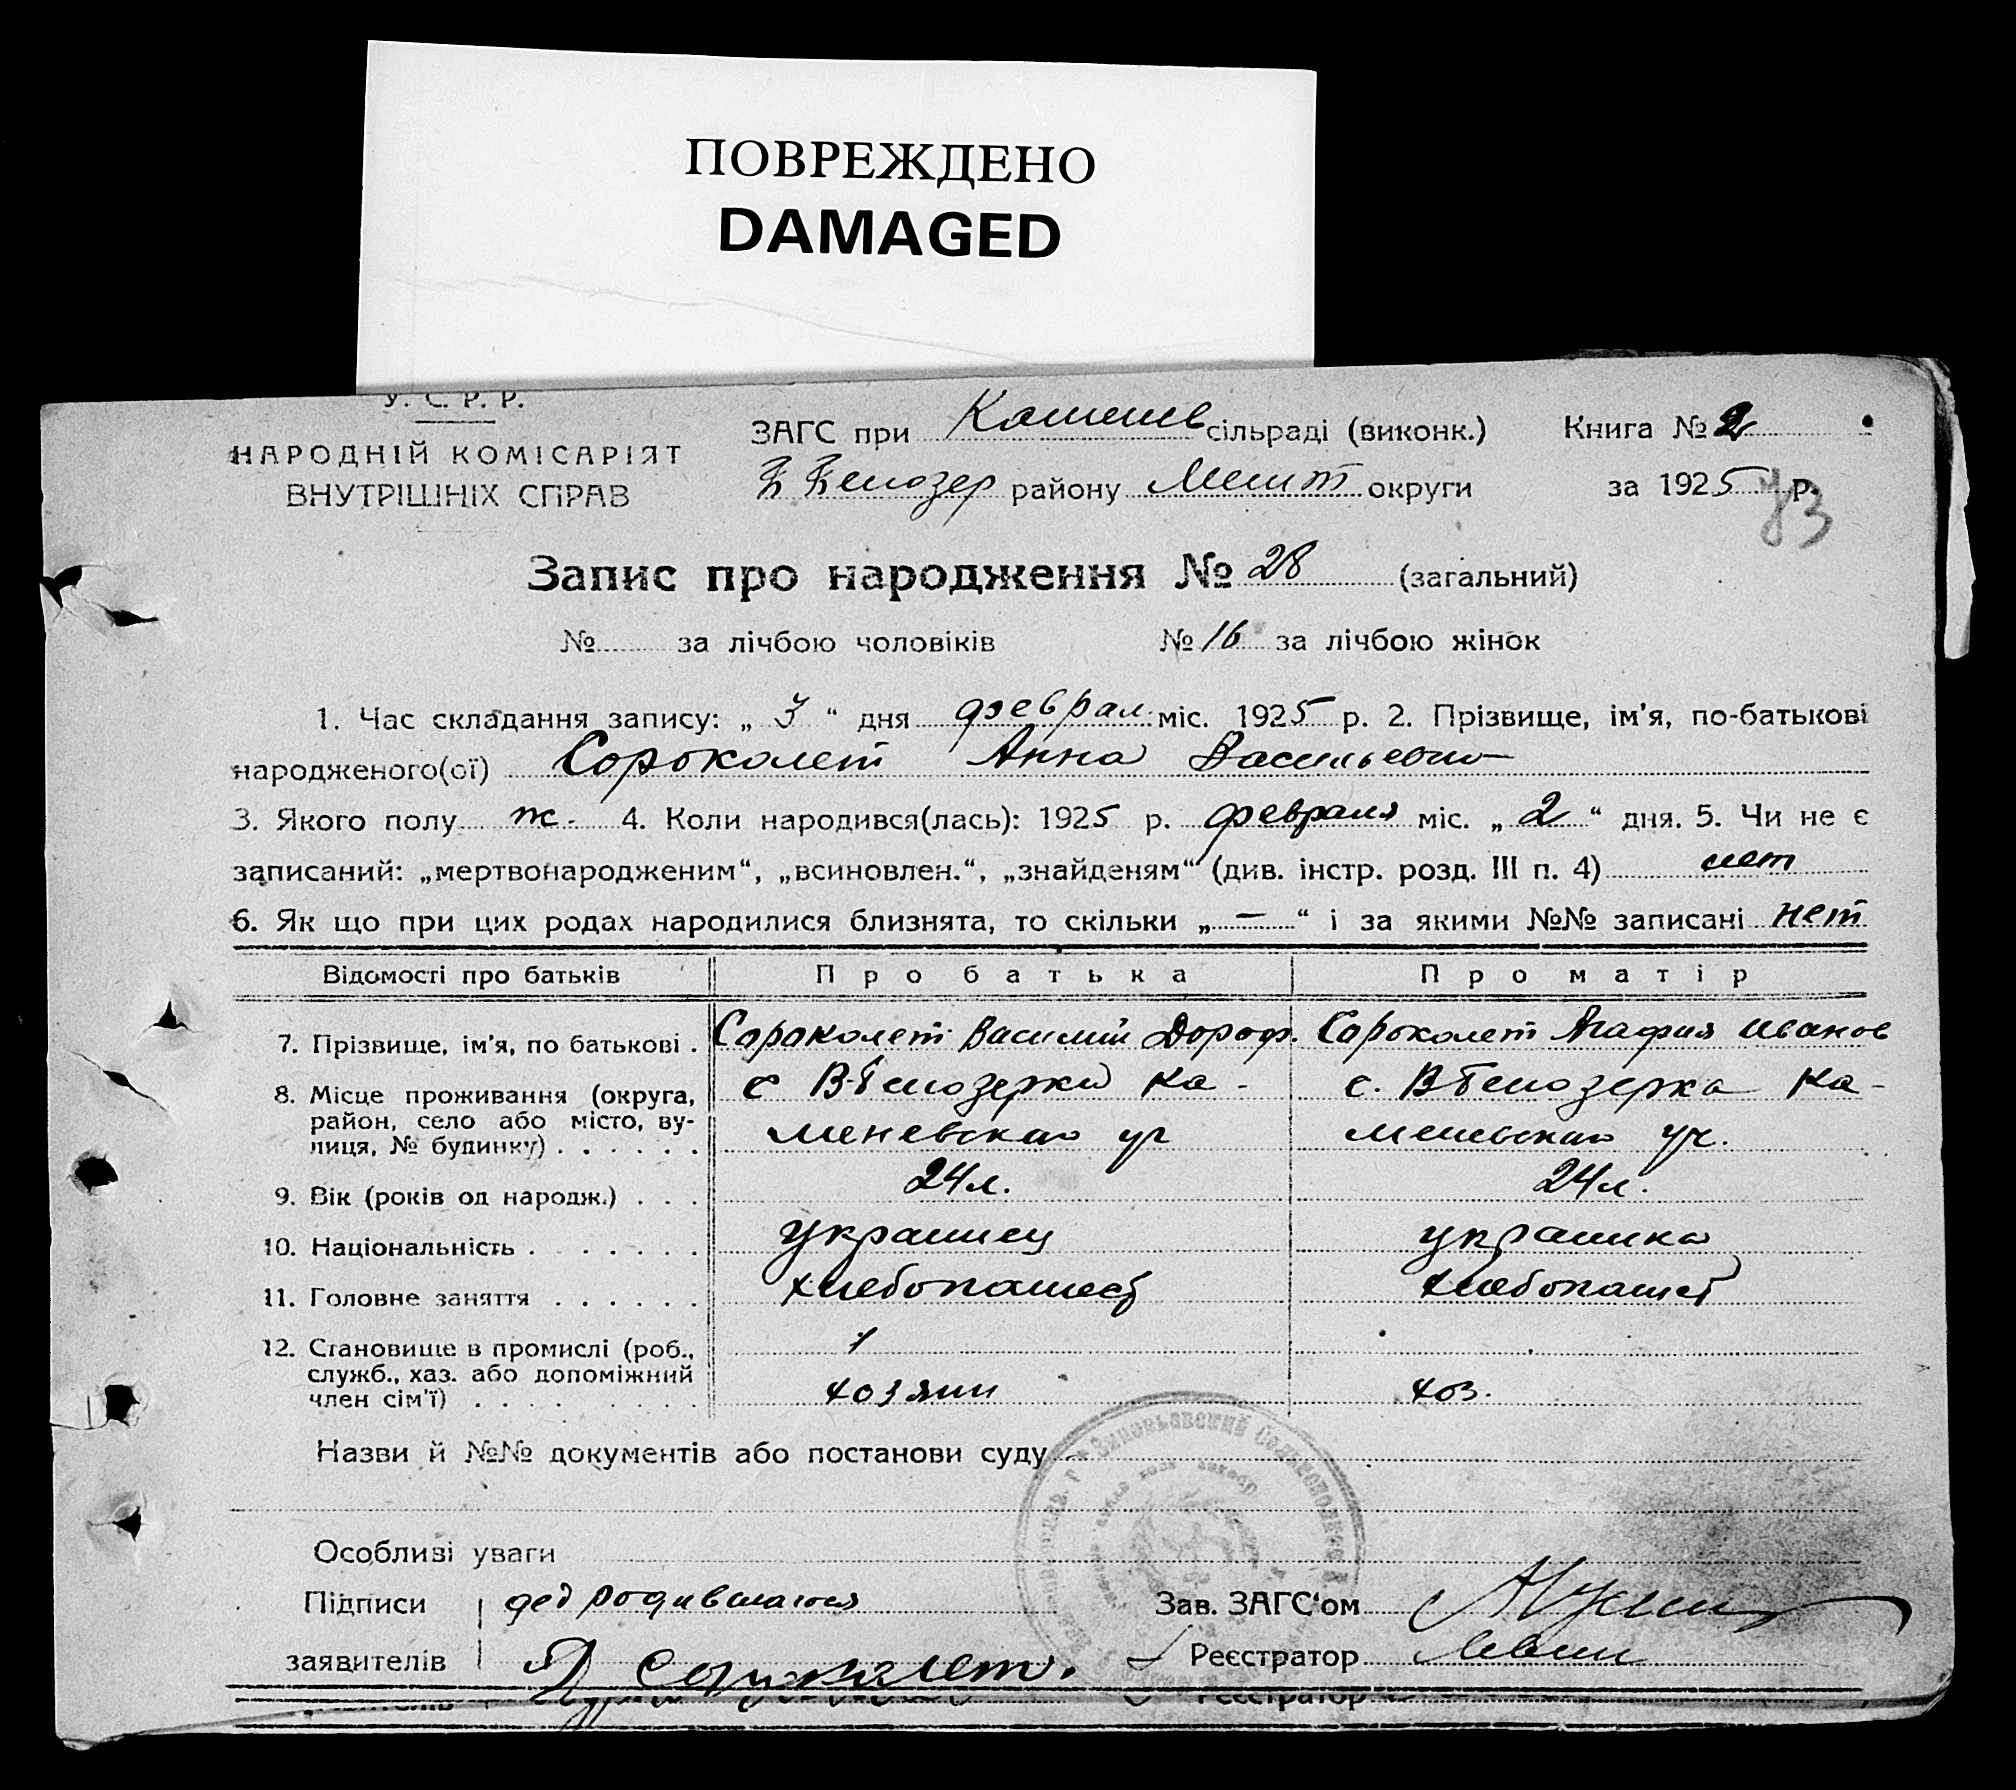 ПОВРЕЖДЕНО
DAMAGED
У. С. Р. Р.
НАРОДНІЙ КОМІСАРІЯТ
ВНУТРІШНІХ СПРАВ
ЗАГС при Каменев сільраді (виконк.) Книга № 2
Белозер району Мелит округи за 1925 р.
83
Запис про народження № 28 (загальний)
№ за лічбою чоловіків № 16 за лічбою жінок
1. Час складання запису: „ 3 “ дня феврал міс. 1925 р. 2. Прізвище, ім'я, по-батькові
народженого(ої) Сороколет Анна Васильевна
3. Якого полу ж. 4. Коли народився(лась): 1925 р. февраля міс. „ 2 “ дня. 5. Чи не є
записаний: „мертвонародженим“, „всиновлен.“, „знайденям“ (див. інстр. розд. III п. 4) нет
6. Як що при цих родах народилися близнята, то скільки „ — “ і за якими №№ записані нет
Відомості про батьків Про батька Про матір
7. Прізвище, ім'я, по батькові . Сороколет Василий Дороф. Сороколет Агафия Иванов
8. Місце проживання (округа, район, село або місто, вулиця, № будинку) с В-Белозерки Ка- с. ВБелозерка Ка-
меневская ул меневская уч.
9. Вік (років од народж.) . . . 24 л. 24 л.
10. Національність . . . . . . . украинец украинка
11. Головне заняття . . . . . . хлебопашест хлебопашест
12. Становище в промислі (роб.,
служб., хаз. або допоміжний
член сім'ї) . . . . . . . . хозяин хоз.
Назви й №№ документів або постанови суду
Особливі уваги
Підписи дед родившагося Зав. ЗАГС'ом
заявителів Д Сороколет. Реєстратор Левин
Реєстратор